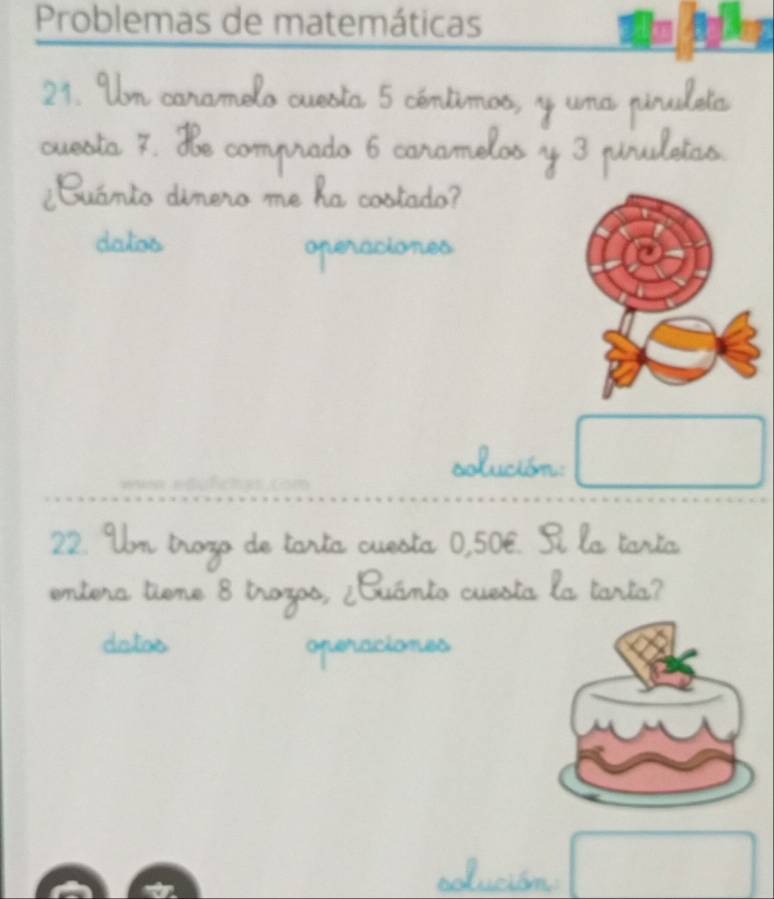 Problemas de matemáticas
21. Un caramelo cuesta 5 céntimos, y una piruleta
cuesta 7. He comprado 6 caramelos y 3 piruletas.
¿Cuánto dinero me ha costado?
datos operaciones
solución:
www.edufichas.com
22. Un trozo de tarta cuesta 0,50€. Si la tarta
entera tiene 8 trozos, ¿Cuánto cuesta la tarta?
datos operaciones
solución: